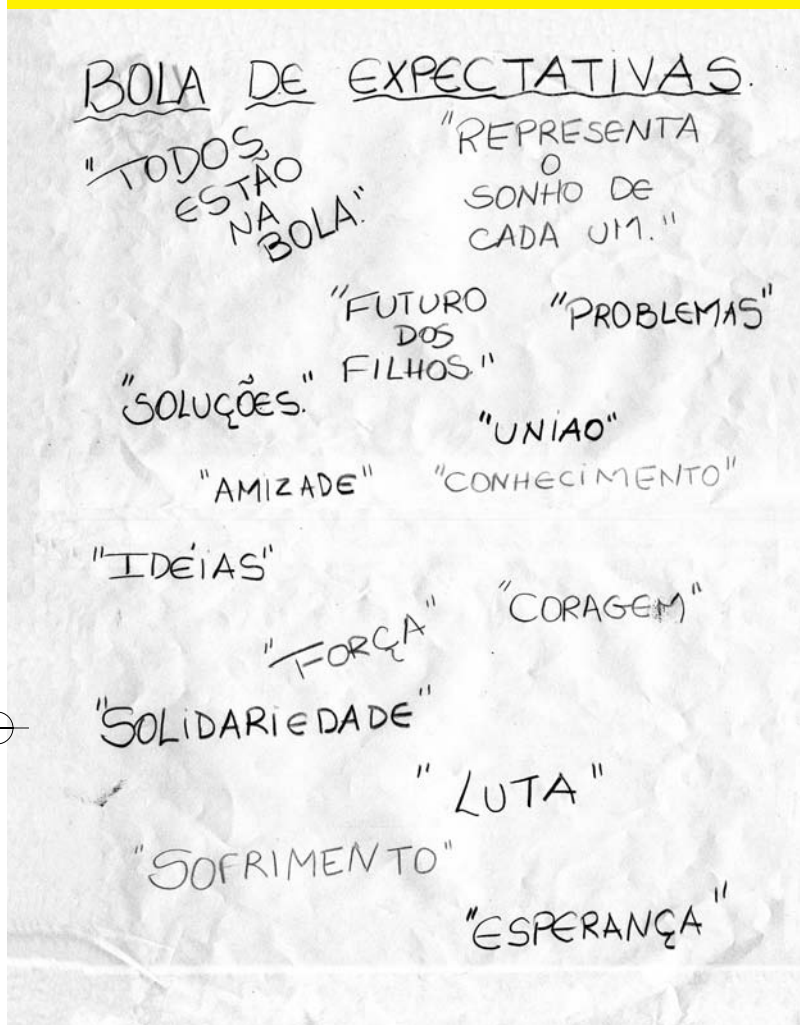 BOLA DE EXPECTATIVAS.
"TODOS
ESTÃO
NA
BOLA."
"REPRESENTA
O
SONHO DE
CADA UM."
"FUTURO
DOS
FILHOS."
"PROBLEMAS"
"SOLUÇÕES."
"UNIAO"
"AMIZADE"
"CONHECIMENTO"
"IDÉIAS"
"CORAGEM"
"FORÇA"
"SOLIDARIEDADE"
"LUTA"
"SOFRIMENTO"
"ESPERANÇA"